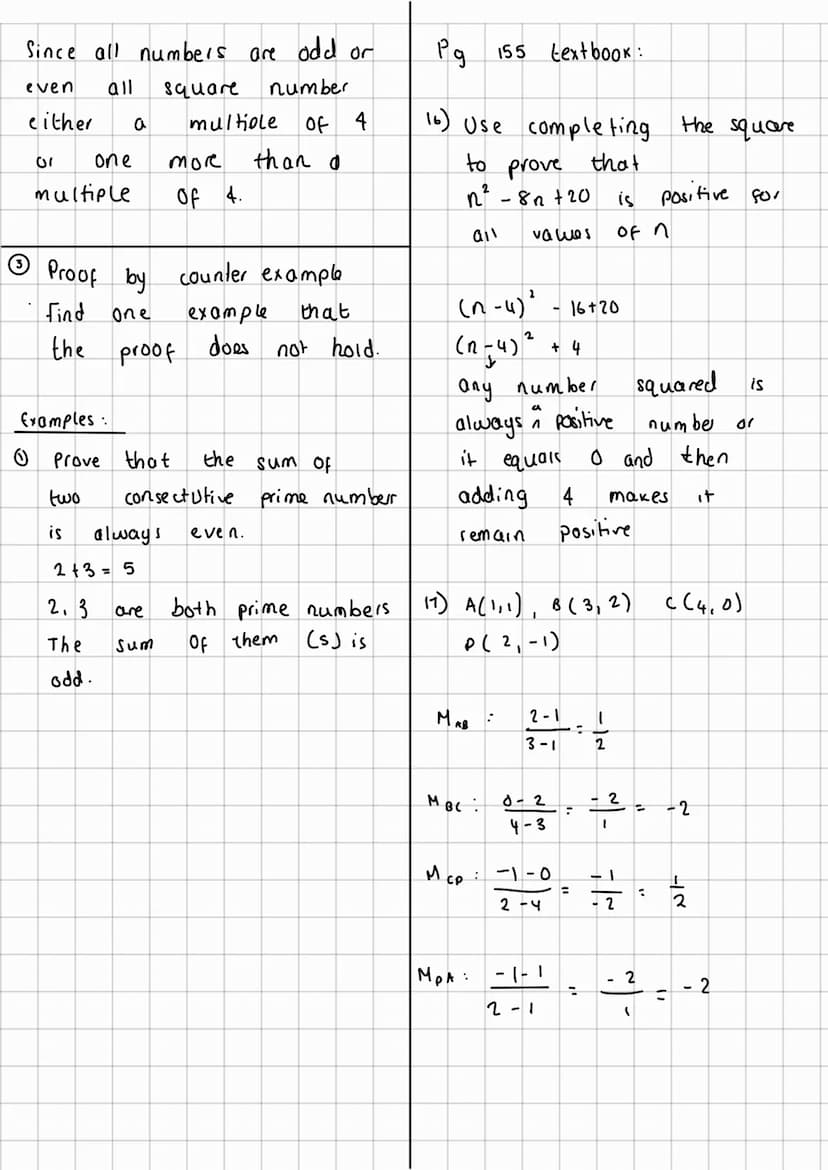 Since all numbers are odd or
even all square number
either a multiole of 4
or one more than a
multiple of 4.
③ Proof by counter example
· find one example that
the proof does not hold.
Examples :
① Prove that the sum of
two consectutive prime numbers
is always even.
2+3 = 5
2, 3 are both prime numbers
The sum of them (s) is
odd.
Pg 155 textbook :
16) Use completing the square
to prove that
n² - 8n + 20 is positive for
all values of n
(n - 4)² - 16 + 20
(n - 4)² + 4
any number squared is
always a positive number or
it equals 0 and then
adding 4 makes it
remain positive
17) A(1,1), B(3,2) C(4,0)
D(2,-1)
M_AB : (2-1)/(3-1) = 1/2
M_BC : (0-2)/(4-3) = -2/1 = -2
M_CD : (-1-0)/(2-4) = -1/-2 = 1/2
M_DA : (-1-1)/(2-1) = -2/1 = -2